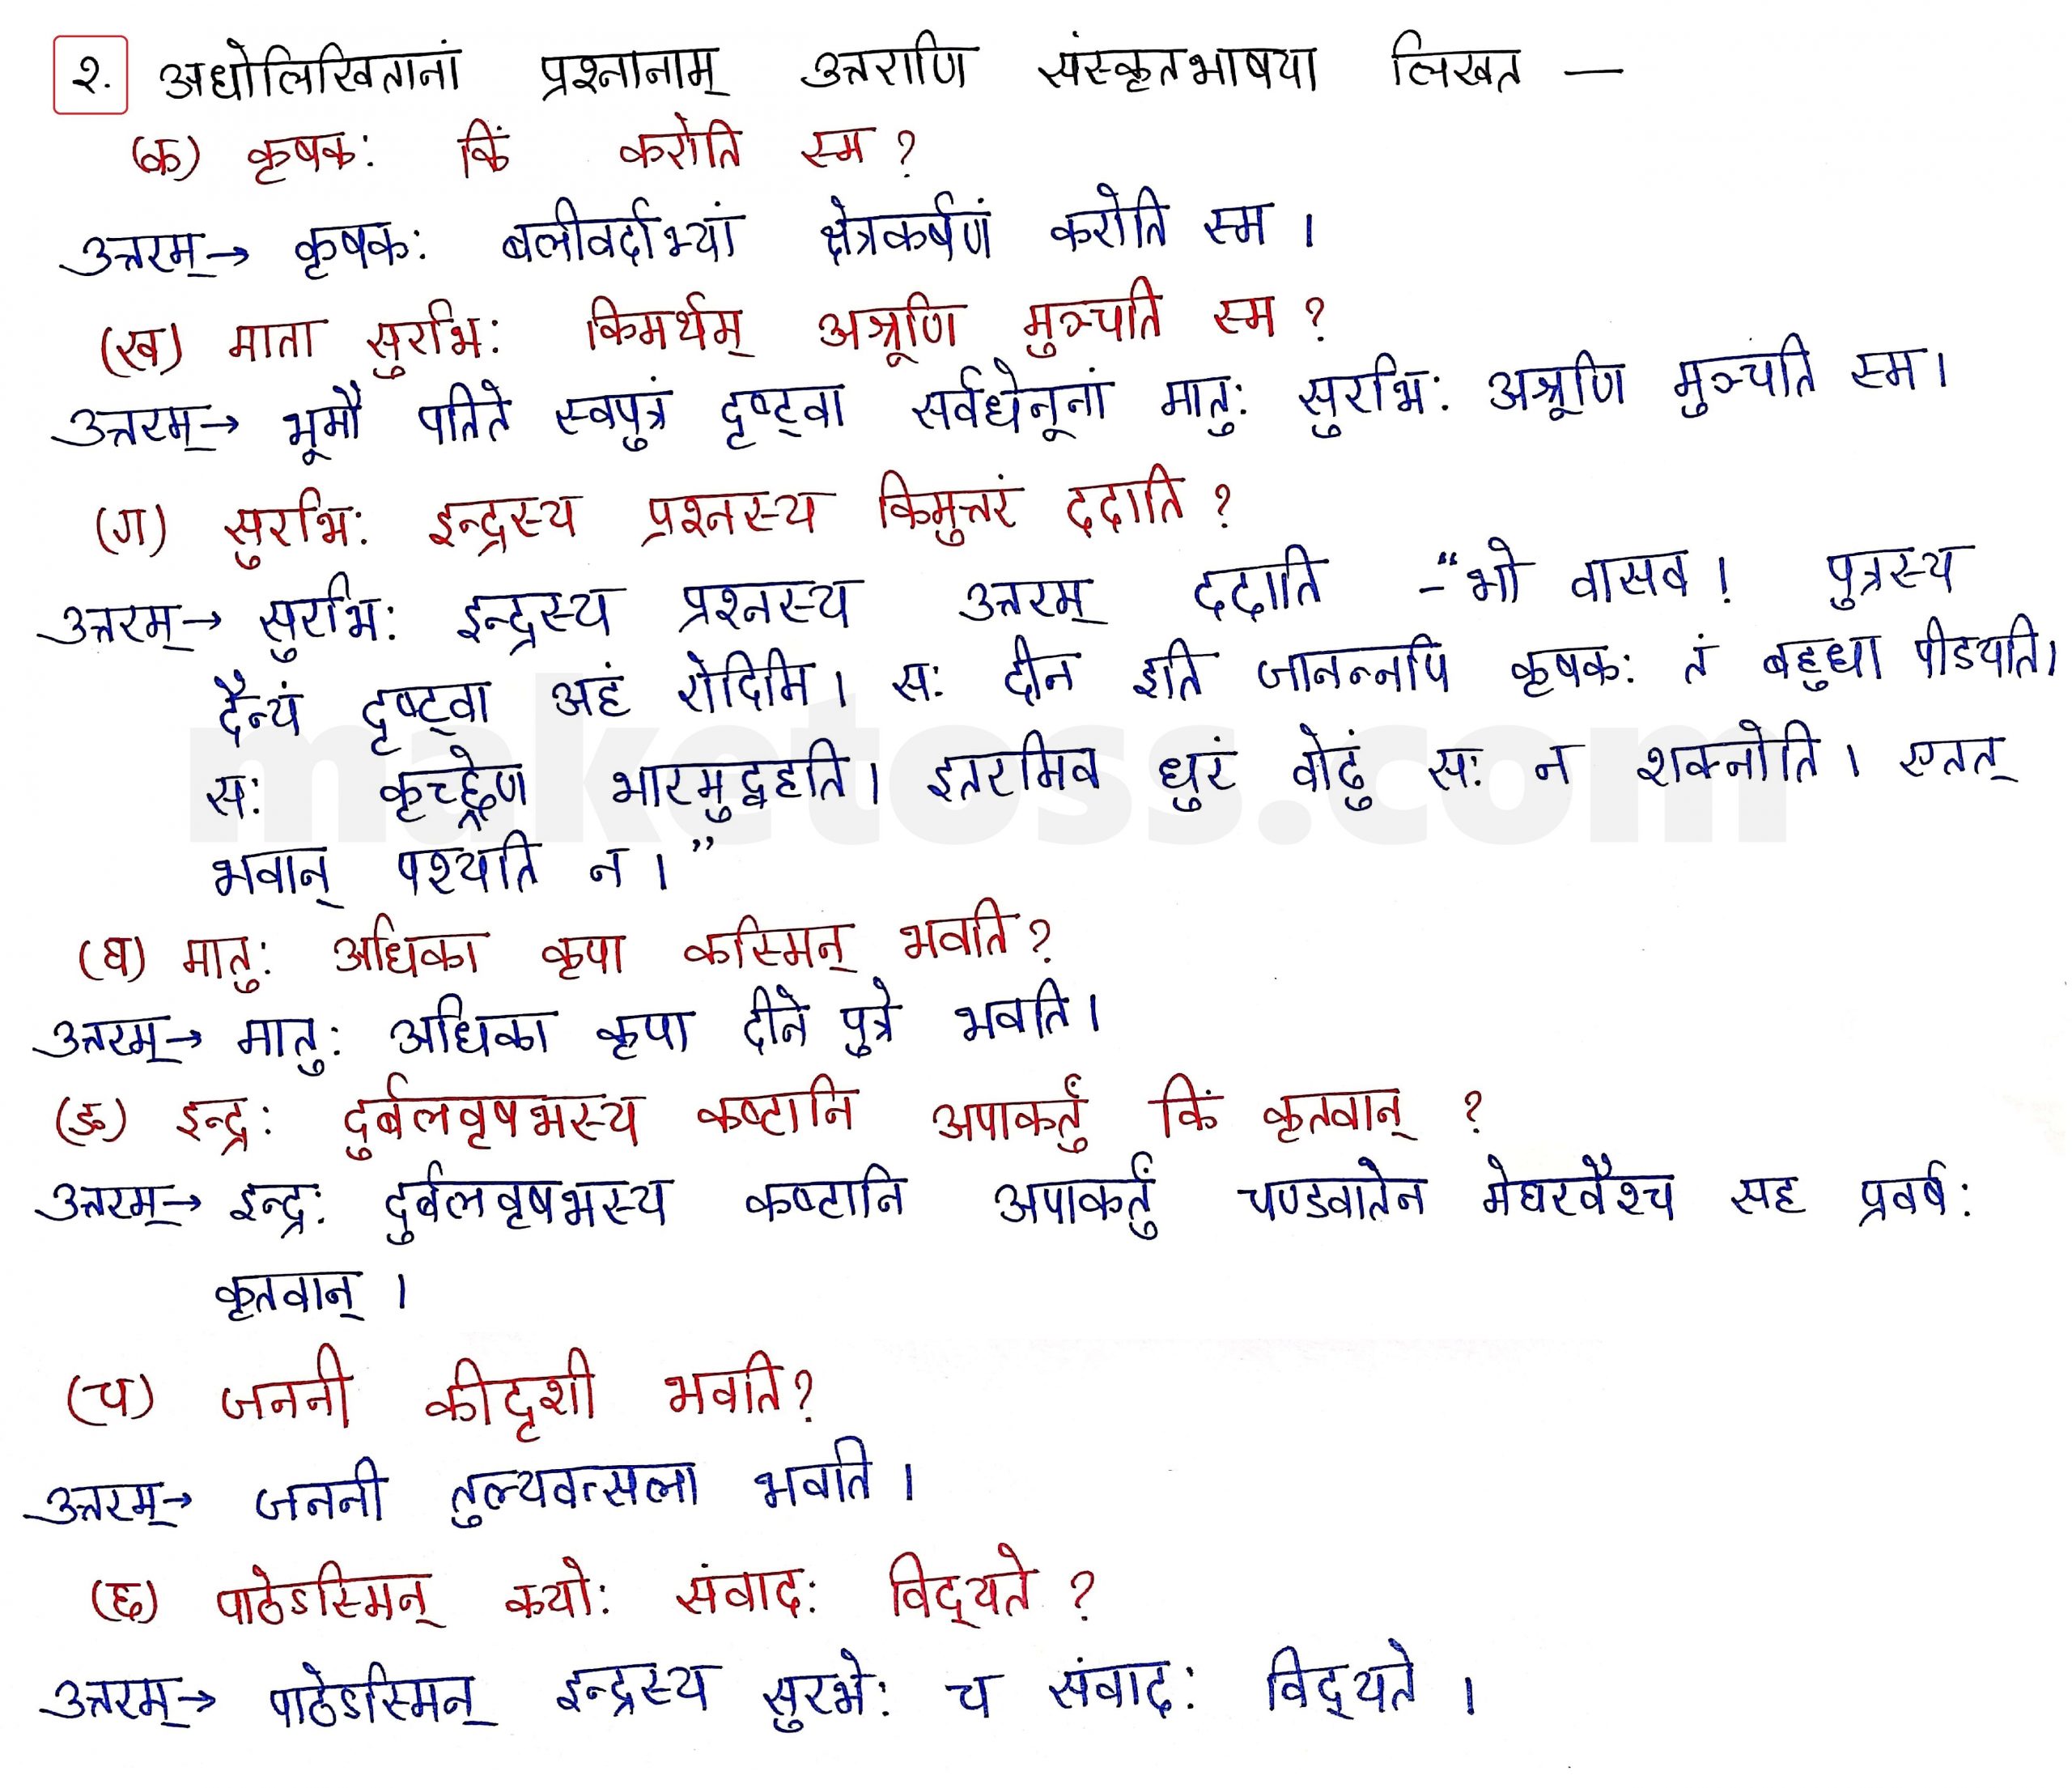 २. अधोलिखितानां प्रश्नानाम् उत्तराणि संस्कृतभाषया लिखत —
(क) कृषकः किं करोति स्म ?
उत्तरम् → कृषकः बलीवर्दाभ्यां क्षेत्रकर्षणं करोति स्म ।
(ख) माता सुरभिः किमर्थम् अश्रूणि मुञ्चति स्म ?
उत्तरम् → भूमौ पतिते स्वपुत्रं दृष्ट्वा सर्वधेनूनां मातुः सुरभिः अश्रूणि मुञ्चति स्म।
(ग) सुरभिः इन्द्रस्य प्रश्नस्य किमुत्तरं ददाति ?
उत्तरम् → सुरभिः इन्द्रस्य प्रश्नस्य उत्तरम् ददाति - “भो वासव ! पुत्रस्य
दैन्यं दृष्ट्वा अहं रोदिमि। सः दीन इति जानन्नपि कृषकः तं बहुधा पीडयति।
सः कृच्छ्रेण भारमुद्वहति। इतरमिव धुरं वोढुं सः न शक्नोति । एतत्
भवान् पश्यति न ।”
maketoss.com
(घ) मातुः अधिका कृपा कस्मिन् भवति ?
उत्तरम् → मातुः अधिका कृपा दीने पुत्रे भवति।
(ङ) इन्द्रः दुर्बलवृषभस्य कष्टानि अपाकर्तुं किं कृतवान् ?
उत्तरम् → इन्द्रः दुर्बलवृषभस्य कष्टानि अपाकर्तुं चण्डवातेन मेघरवैश्च सह प्रवर्षः
कृतवान् ।
(च) जननी कीदृशी भवति ?
उत्तरम् → जननी तुल्यवत्सला भवति ।
(छ) पाठेऽस्मिन् कयोः संवादः विद्यते ?
उत्तरम् → पाठेऽस्मिन् इन्द्रस्य सुरभेः च संवादः विद्यते ।